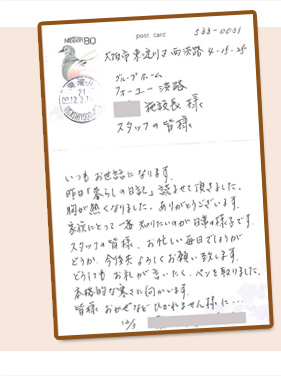 NIPPON 80
post card
533-0031
大阪市東淀川区西淡路 4-15-25
グループホーム
フォーユー淡路
施設長様
スタッフの皆様
いつもお世話になります。
昨日「暮らしの日記」読ませて頂きました。
胸が熱くなりました。ありがとうございます。
家族にとって一番知りたいのが日常の様子です。
スタッフの皆様、お忙しい毎日でしょうが
どうか、今後共よろしくお願い致します。
どうしてもお礼が言いたく、ペンを取りました。
本格的な寒さに向かいます。
皆様おかぜなどひかれません様に…
12/3